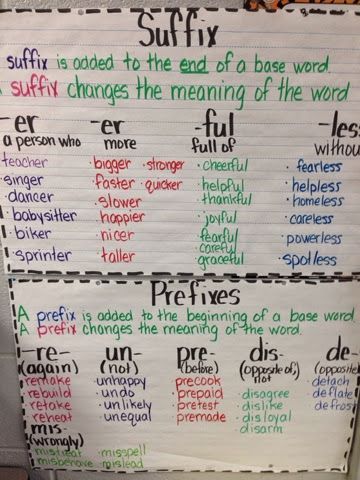 Suffix
suffix is added to the end of a base word.
suffix changes the meaning of the word
-er -er -ful -less
a person who more full of without
teacher · bigger · stronger · cheerful · fearless
singer · faster · quicker · helpful · helpless
dancer · slower · thankful · homeless
babysitter · happier · joyful · careless
biker · nicer · fearful · powerless
· careful
sprinter · taller · graceful · spotless
Prefixes
A prefix is added to the beginning of a base word
A prefix changes the meaning of the word.
-re- un- pre- dis- de-
(again) (not) (before) (opposite of, not (opposite)
remake · unhappy · precook · detach
rebuild · undo · prepaid · disagree · deflate
retake · unlikely · pretest · dislike · defrost
reheat · unequal · premade · disloyal
mis- · disarm
(wrongly)
mistreat · misspell
misbehave · mislead